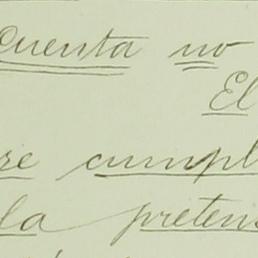 cuenta no
El
re cumpl
la pretens